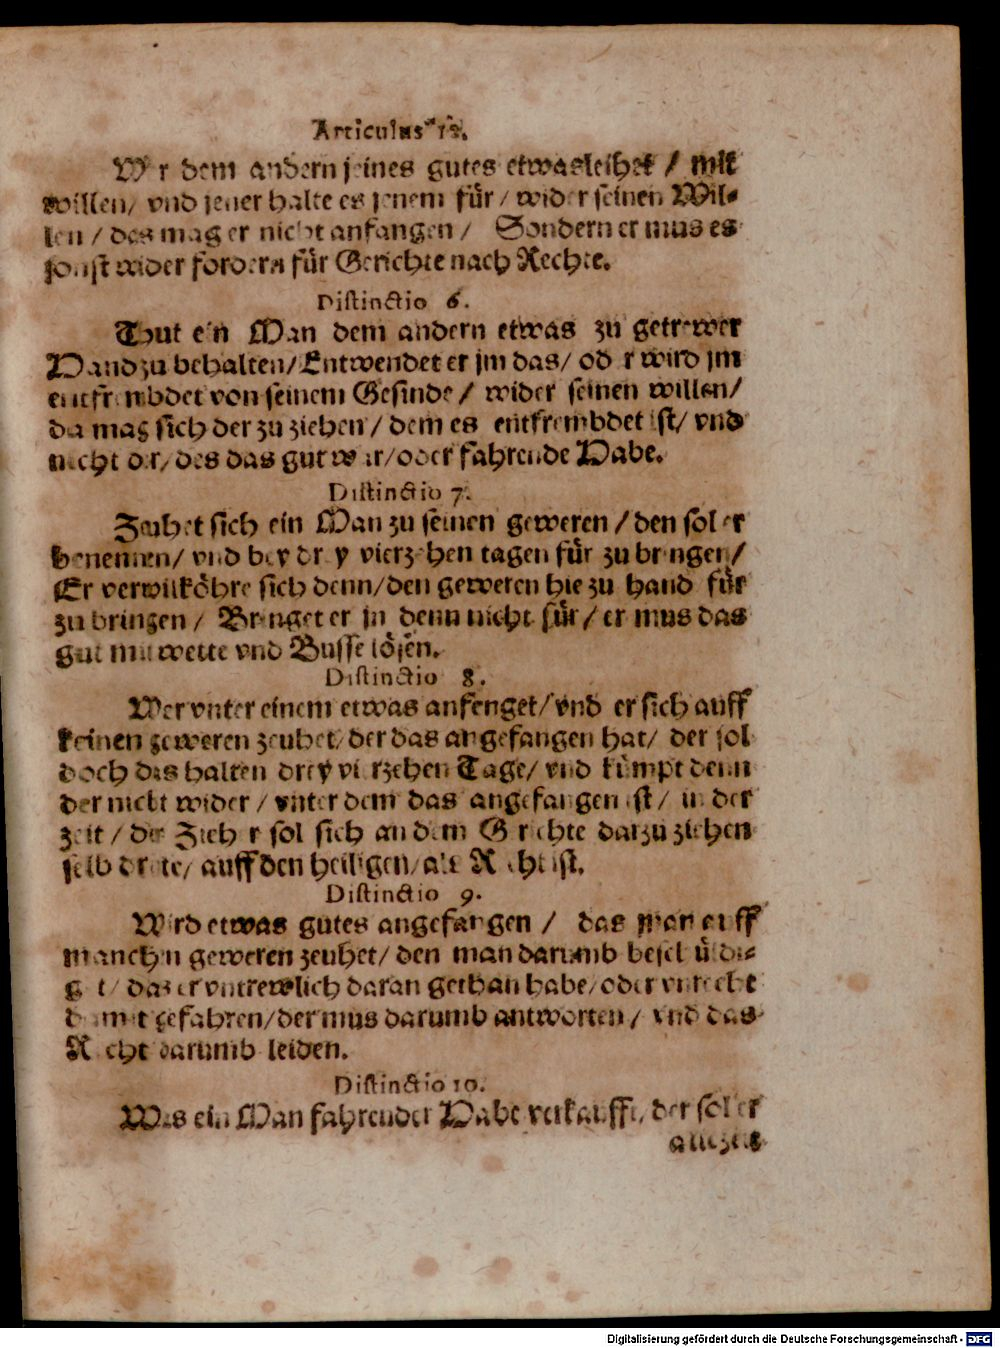 Articulus 12.
Wer dem andern seines gutes etwas leihet / mit
willen / vnd jener halte es jenem für / wider seinen Wil-
len / das mag er nicht anfangen / Sondern er mus es
sonst wider fordern für Gerichte nach Rechte.
Distinctio 6.
Thut ein Man dem andern etwas zu getrewer
Hand zu behalten / Entwendet er jm das / oder wird jm
entfrembdet von seinem Gesinde / wider seinen willen /
da mag sich der zu ziehen / dem es entfrembdet ist / vnd
nicht der / des das gut war / oder fahrende Habe.
Distinctio 7.
Zeuhet sich ein Man zu seinen geweren / den sol er
benennen / vnd bey drey vierzehen tagen für zu bringen /
Er verwilköhre sich denn / den geweren hie zu hand für
zu bringen / Bringet er jn denn nicht für / er mus das
gut mit wette vnd Busse lösen.
Distinctio 8.
Wer vnter einem etwas anfenget / vnd er sich auff
keinen geweren zeuhet / der das angefangen hat / der sol
doch das halten drey vierzehen Tage / vnd kümpt denn
der nicht wider / vnter dem das angefangen ist / in der
zeit / der Zieher sol sich an dem Gerichte darzu ziehen
selb dritte / auff den heiligen / als Recht ist.
Distinctio 9.
Wird etwas gutes angefangen / das man auff
manchen geweren zeuhet / den man darumb beschüldi-
get / das er vntrewlich daran gethan habe / oder vnrecht
damit gefahren / der mus darumb antworten / vnd das
Recht darumb leiden.
Distinctio 10.
Was ein Man fahrender Habe verkaufft / der sol er
allezeit
Digitalisierung gefördert durch die Deutsche Forschungsgemeinschaft - DFG